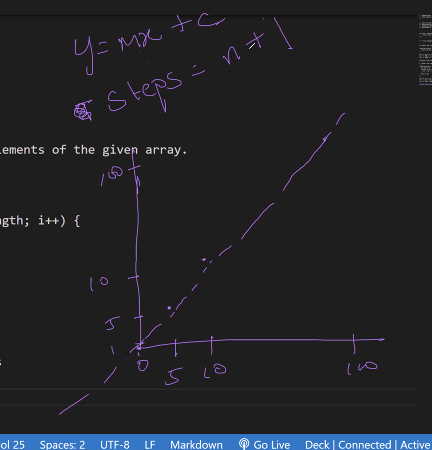 y = mx + c
steps = n + 1
ements of the given array.
100
gth; i++) {
10
5
1
0
5 10 100
ol 25 Spaces: 2 UTF-8 LF Markdown Go Live Deck | Connected | Active